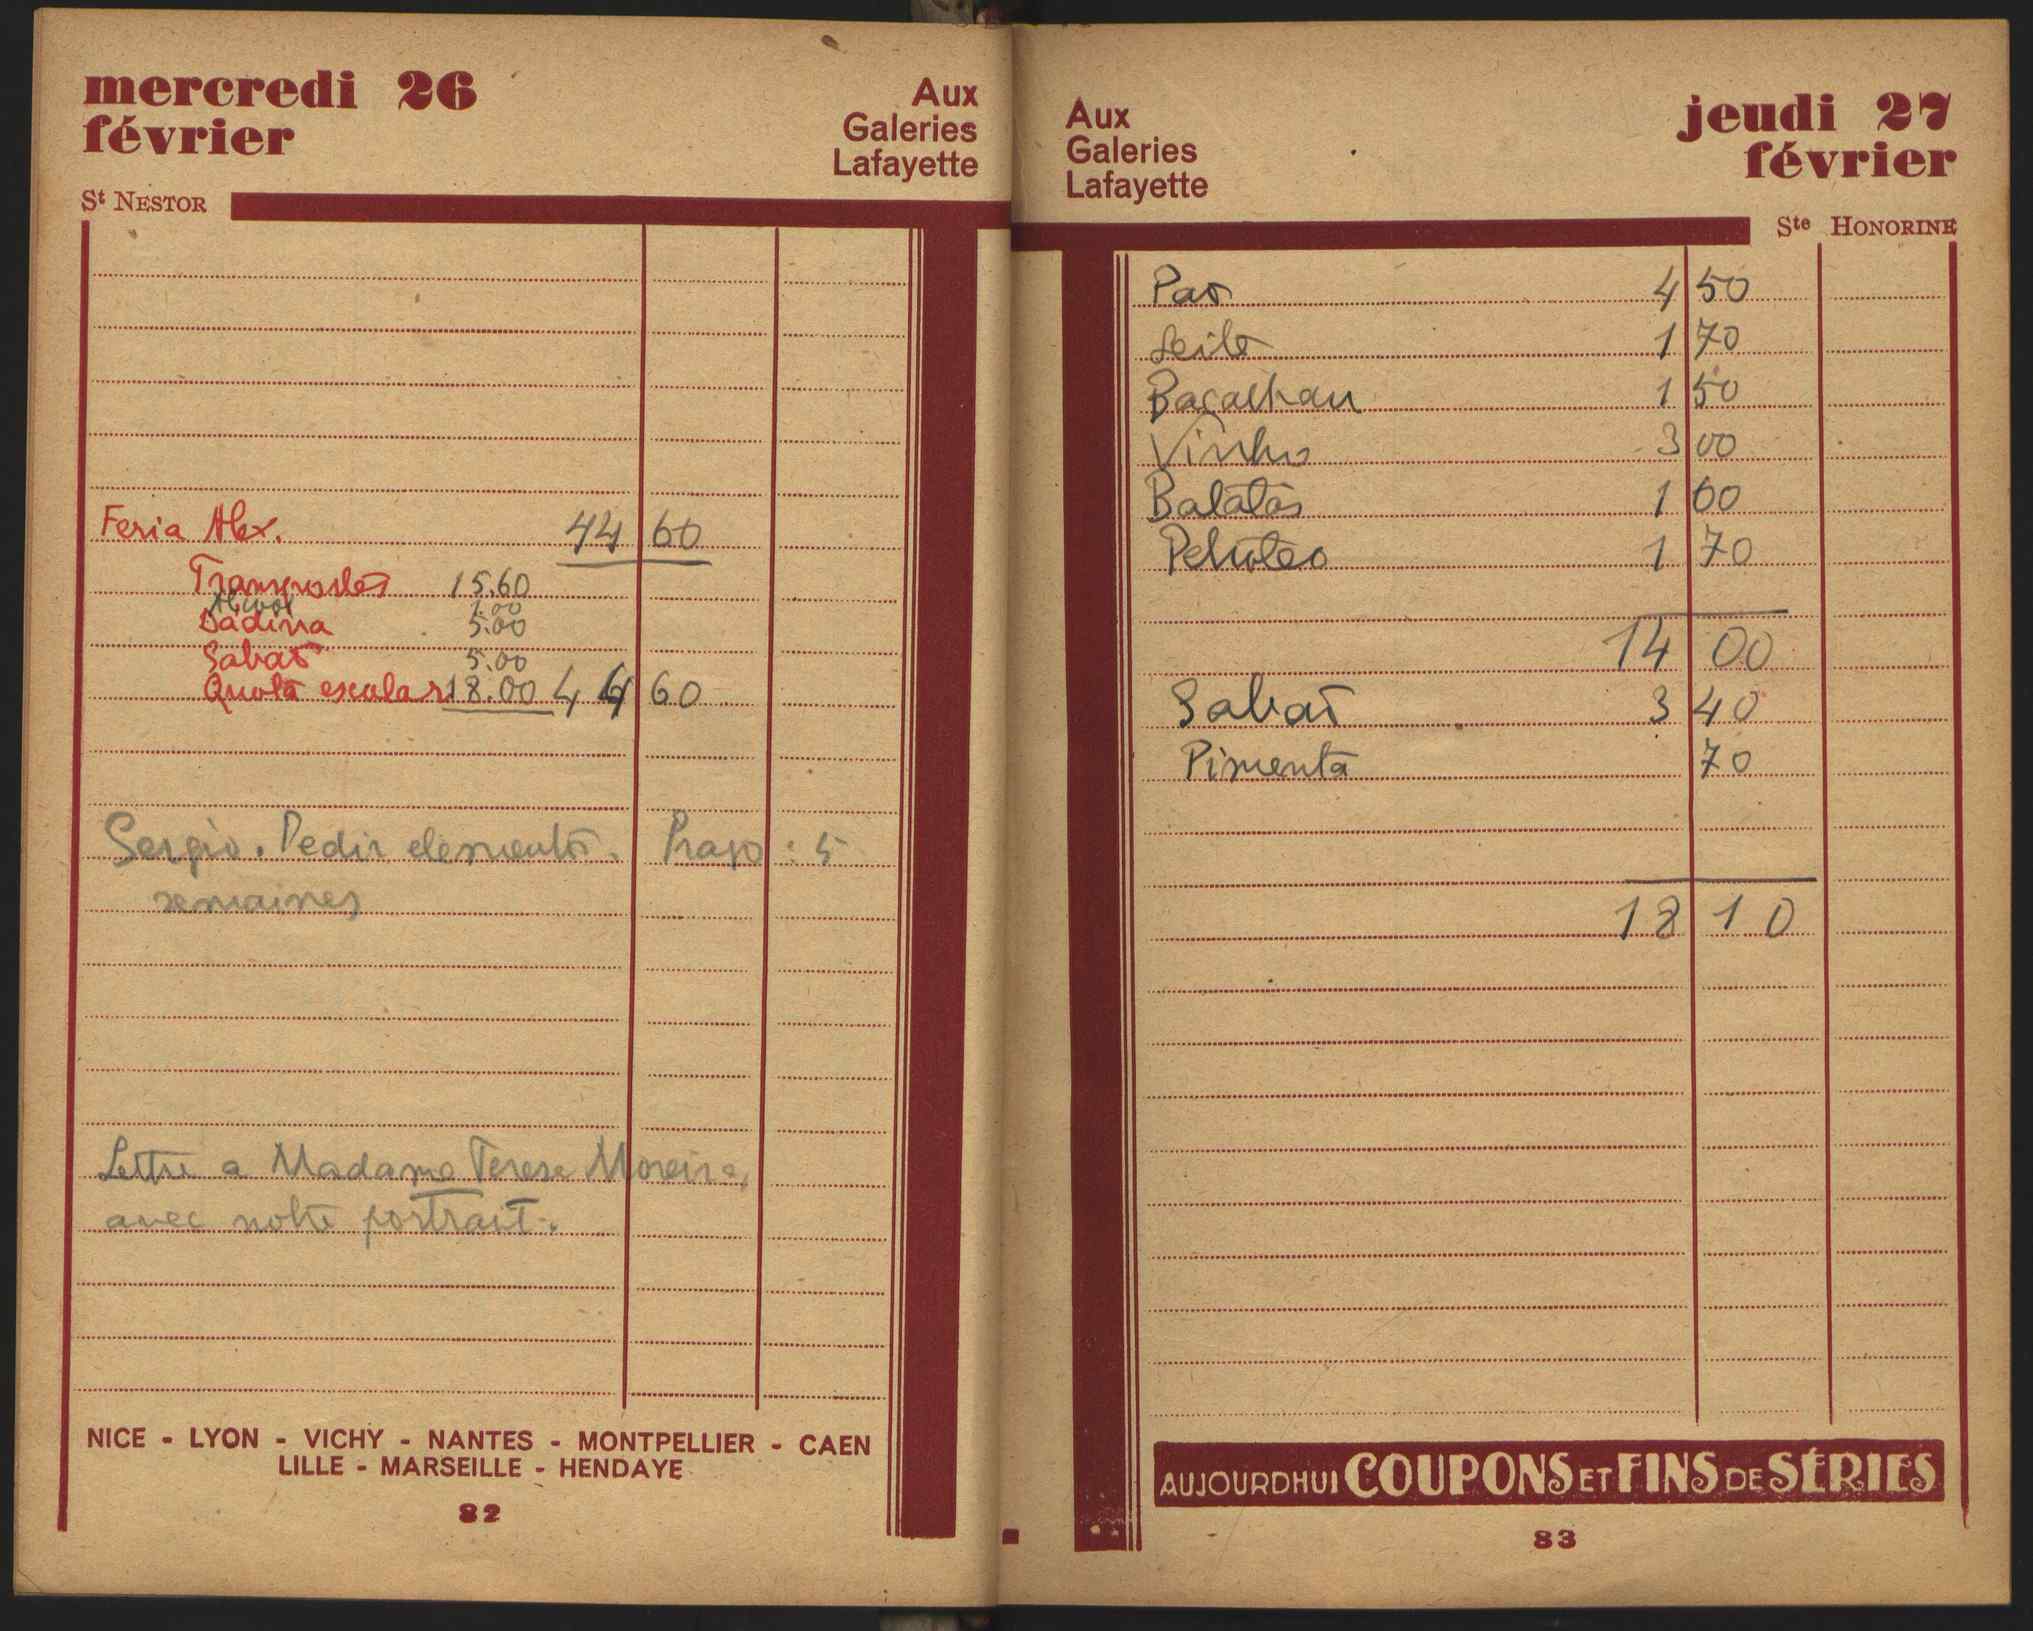 mercredi 26
février
Aux
Galeries
Lafayette
St NESTOR
Feria Alex. 44 60
Transportes 15.60
Alcool 1.00
Dadina 5.00
Sabaõ 5.00
Quota escolar 18.00 44 60
Sergio. Pedir elementos. Prazo : 5
semaines
Lettre a Madame Terese Moreira,
avec notre portrait.
NICE - LYON - VICHY - NANTES - MONTPELLIER - CAEN
LILLE - MARSEILLE - HENDAYE
82
Aux
Galeries
Lafayette
jeudi 27
février
Ste HONORINE
Pao 4 50
Leite 1 70
Bacalhau 1 50
Vinho 3 00
Batatas 1 60
Petroleo 1 70
14 00
Sabaõ 3 40
Pimenta 70
18 10
AUJOURDHUI COUPONS ET FINS DE SÉRIES
83